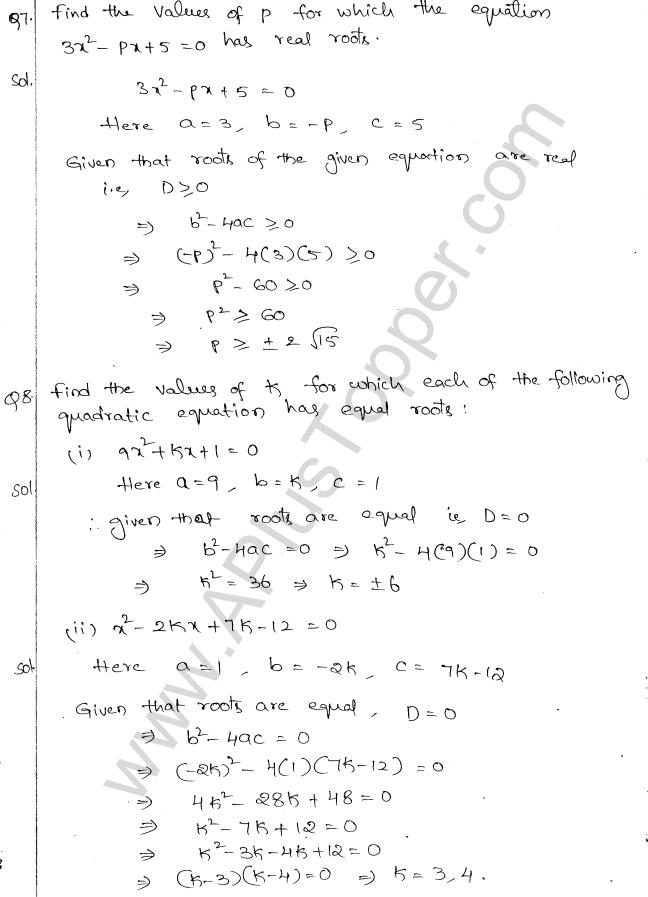 Q7. Find the values of p for which the equation
3x² - px + 5 = 0 has real roots.
Sol.
3x² - px + 5 = 0
Here a = 3, b = -p, c = 5
Given that roots of the given equation are real
i.e, D ≥ 0
⇒ b² - 4ac ≥ 0
⇒ (-p)² - 4(3)(5) ≥ 0
⇒ p² - 60 ≥ 0
⇒ p² ≥ 60
⇒ p ≥ ± 2√15
Q8 Find the values of k for which each of the following
quadratic equation has equal roots :
(i) 9x² + kx + 1 = 0
Sol Here a = 9, b = k, c = 1
∴ given that roots are equal ie, D = 0
⇒ b² - 4ac = 0 ⇒ k² - 4(9)(1) = 0
⇒ k² = 36 ⇒ k = ± 6
(ii) x² - 2kx + 7k - 12 = 0
Sol. Here a = 1, b = -2k, c = 7k - 12
Given that roots are equal, D = 0
⇒ b² - 4ac = 0
⇒ (-2k)² - 4(1)(7k - 12) = 0
⇒ 4k² - 28k + 48 = 0
⇒ k² - 7k + 12 = 0
⇒ k² - 3k - 4k + 12 = 0
⇒ (k - 3)(k - 4) = 0 ⇒ k = 3, 4.
www.APlusTopper.com